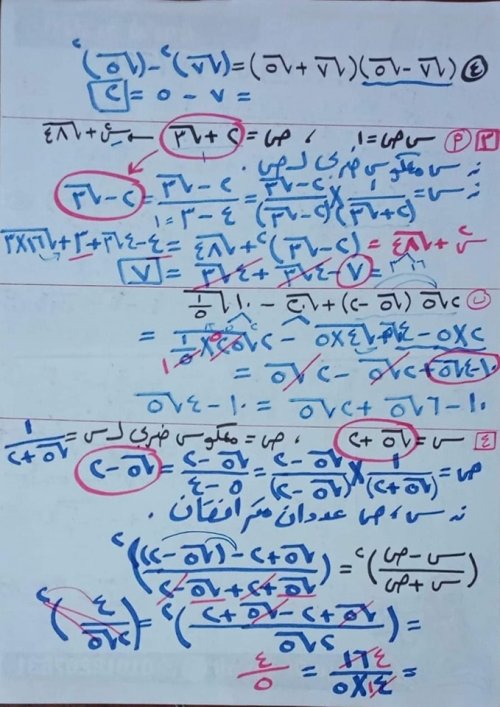 ④ (√٧ - √٥)(√٧ + √٥) = (√٧)² - (√٥)²
= ٧ - ٥ = ٢
٣ م س ص = ١ ، ص = ٢ + √٣ ← س² + √٤٨
∴ س معكوس ضربي لـ ص .
∴ س = ١/(٢ + √٣) × (٢ - √٣)/(٢ - √٣) = (٢ - √٣)/(٤ - ٣ = ١) = ٢ - √٣
س² + √٤٨ = (٢ - √٣)² + √٤٨ = ٤ - ٤√٣ + ٣ + √١٦×٣
= ٧ - ٤√٣ + ٤√٣ = ٧
ب ٢√٥ (√٥ - ٢) + √٢٠ - ١٠√١/٥
٢×٥ - ٤√٥ + √٤×٥ =
١٠ - ٤√٥ + ٢√٥ - ٢√٥ =
١٠ - ٦√٥ + ٢√٥ = ١٠ - ٤√٥
٤ س = √٥ + ٢ ، ص = معكوس ضربي لـ س = ١/(√٥ + ٢)
ص = ١/(√٥ + ٢) × (√٥ - ٢)/(√٥ - ٢) = (√٥ - ٢)/(٥ - ٤) = √٥ - ٢
∴ س ، ص عددان مترافقان .
((س - ص)/(س + ص))² = (((√٥ + ٢) - (√٥ - ٢))/(√٥ + ٢ + √٥ - ٢))²
= ((√٥ + ٢ - √٥ + ٢)/٢√٥)² = (٤/٢√٥)²
= ١٦/(٤×٥) = ٤/٥